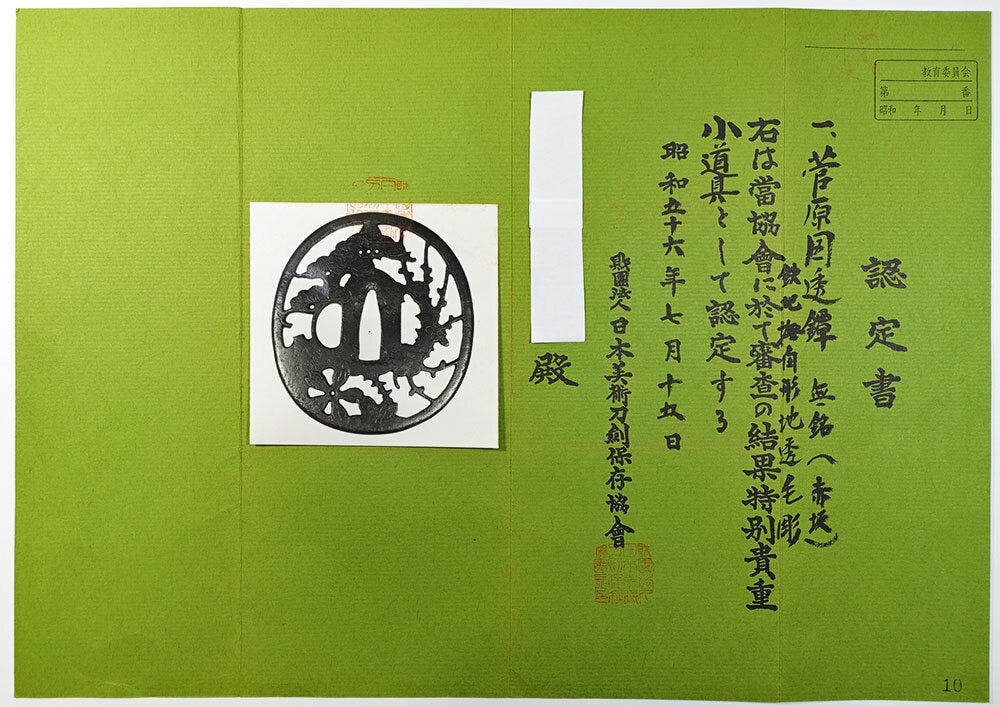 認定書
一、菅原図透鐔 無銘(赤坂)
鉄地撫角形地透毛彫
右は當協會に於て審査の結果特別貴重
小道具として認定する
昭和五十六年七月十五日
財團法人日本美術刀劍保存協會
殿
教育委員会
第 番
昭和 年 月 日
10